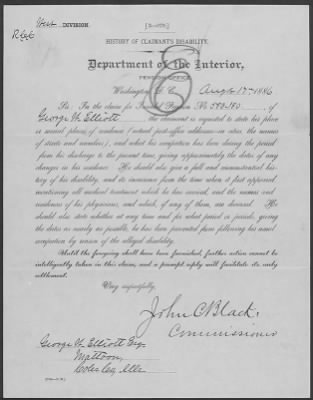 West DIVISION.
[3—077.]
HISTORY OF CLAIMANT'S DISABILITY.
Department of the Interior,
PENSION OFFICE,
Washington, D. C., Augt 17th 1886
Sir: In the claim for Pension No. 593-180 of
George W. Elliott the claimant is requested to state his place
or several places of residence (actual post-office addresses—in cities, the names
of streets and numbers), and what his occupation has been during the period
from his discharge to the present time, giving approximately the dates of any
changes in his residence. He should also give a full and circumstantial his-
tory of his disability, and its treatment from the time when it first appeared
mentioning all medical treatment which he has received, and the names and
residences of his physicians, and which, if any of them, are deceased. He
should also state whether at any time and for what period or periods, giving
the dates as nearly as possible, he has been prevented from following his usual
occupation by reason of the alleged disability.
Until the foregoing shall have been furnished, further action cannot be
intelligently taken in this claim, and a prompt reply will facilitate its early
settlement.
Very respectfully,
John C Black.
Commissioner
George W. Elliott Esq.
Mattoon,
Coles Co, Ills